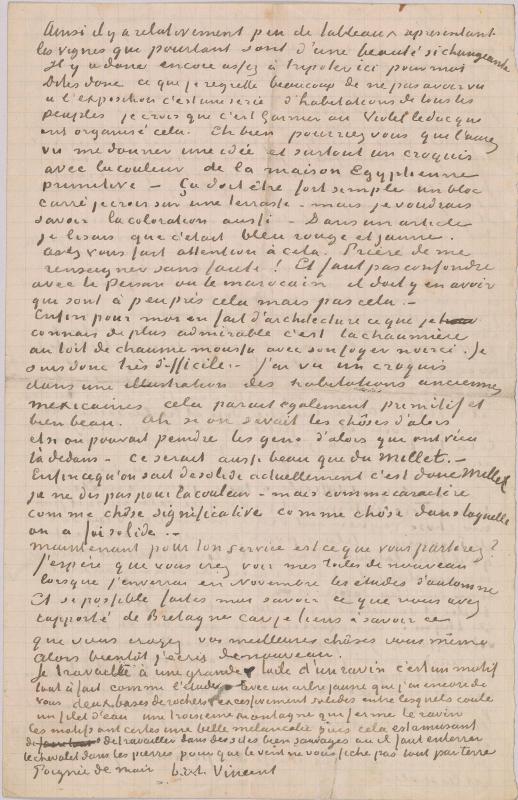 Ainsi il y a relativement peu de tableaux représentant
les vignes que pourtant sont d'une beauté si changeante
Il y a donc encore assez à tripoter ici pour moi
Dites donc ce que je regrette beaucoup de ne pas avoir vu
à l'exposition c'est une série d'habitations de tous les
peuples je crois que c'est Garnier ou Violet le duc que
ont organisé cela. Eh bien pourrez vous que l'aurez
vu me donner une idée et surtout un croquis
avec la couleur de la maison Egyptienne
primitive – Ça doit être fort simple un bloc
carré je crois sur une terrasse – mais je voudrais
savoir la coloration aussi – Dans un article
je lisais que c'était bleu rouge et jaune.
avez vous fait attention à cela. Prière de me
renseigner sans faute! Et faut pas confondre
avec le Persan ou le marocain il doit y en avoir
qui sont à peu près cela mais pas cela. –
Enfin pour moi en fait d'architecture ce que je
connais de plus admirable c'est la chaumière
au toit de chaume moussu avec son foyer noirci. Je
suis donc très difficile. – J'ai vu un croquis
dans une illustration des habitations anciennes
mexicaines cela parait également primitif et
bien beau. Ah si on savait les chôses d'alors
et si on pouvait peindre les gens d'alors qui ont vécu
là dedans – ce serait aussi beau que du Millet. –
Enfin ce qu'on sait de solide actuellement c'est donc Millet
je ne dis pas pour la couleur – mais comme caractère
comme chôse significative comme chôse dans laquelle
on a foi solide. –
maintenant pour ton service est ce que vous partirez?
J'espère que vous irez voir mes toiles de nouveau
lorsque j'enverrai en Novembre les études d'automne
Et si possible faites moi savoir ce que vous avez
rapporté de Bretagne car je tiens à savoir ce
que vous croyez vos meilleures chôses vous même
alors bientôt j'écris de nouveau.
Je travaille à une grande toile d'un ravin c'est un motif
tout à fait comme l'étude avec un arbre jaune que j'ai encore de
vous deux bases de rochers excessivement solides entre lesquels coule
un filet d'eau une troisième montagne qui ferme le ravin
Ces motifs ont certes une belle melancolie puis cela est amusant
de travailler dans des sites bien sauvages où il faut enterrer
le chevalet dans les pierres pour que le vent ne vous fiche pas tout par terre
Poignée de main b. à t. Vincent